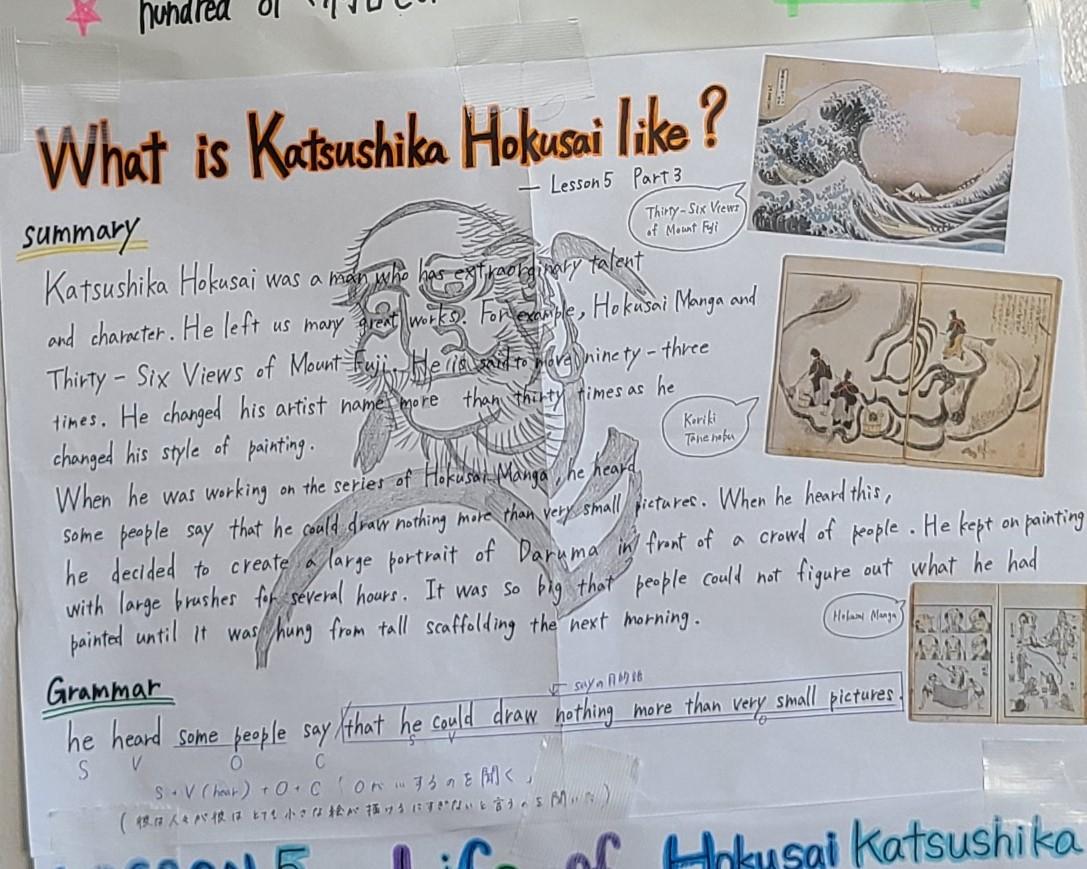 hundred of
What is Katsushika Hokusai like?
— Lesson 5 Part 3
Thirty-Six Views
of Mount Fuji
summary
Katsushika Hokusai was a man who has extraorginary talent
and character. He left us many great works. For example, Hokusai Manga and
Thirty-Six Views of Mount Fuji. He is said to move ninety-three
times. He changed his artist name more than thirty times as he
changed his style of painting.
Koriki
Tanenobu
When he was working on the series of Hokusai Manga, he heard
some people say that he could draw nothing more than very small pictures. When he heard this,
he decided to create a large portrait of Daruma in front of a crowd of people. He kept on painting
with large brushes for several hours. It was so big that people could not figure out what he had
painted until it was hung from tall scaffolding the next morning.
Hokusai Manga
Grammar
sayの目的語
he heard some people say that he could draw nothing more than very small pictures.
S V O C S V O
S+V(hear)+O+C 「Oが…するのを聞く」
(彼は人々が彼はとても小さな絵が描けるにすぎないと言うのを聞いた)
Life of Hokusai Katsushika